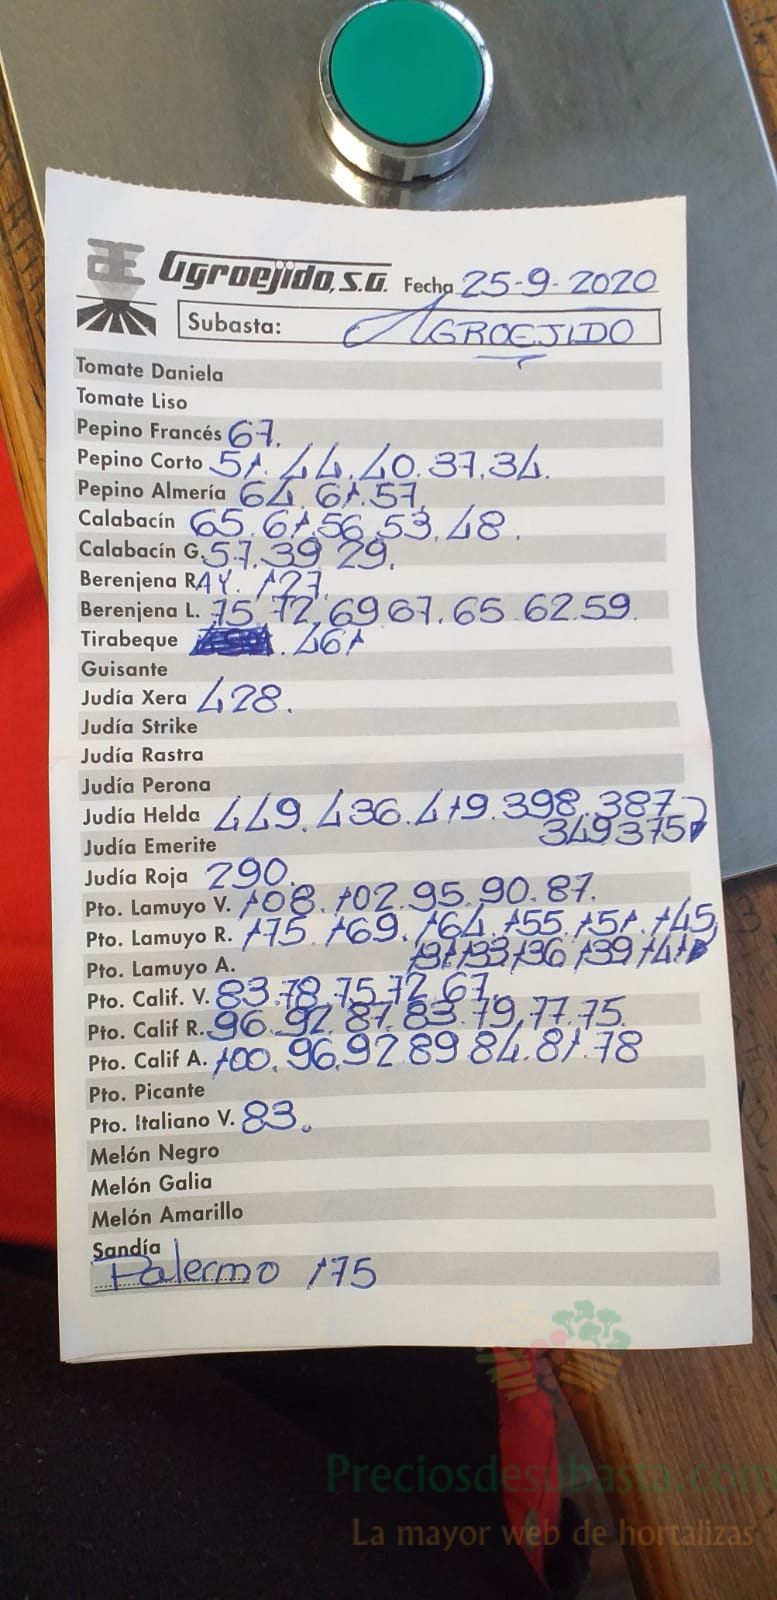 Agroejido, S.A. Fecha 25-9-2020
Subasta: AGROEJIDO
Tomate Daniela
Tomate Liso
Pepino Francés 67.
Pepino Corto 51.44.40.37.34.
Pepino Almería 64.61.57.
Calabacín 65.61.56.53.48.
Calabacín G. 57.39.29.
Berenjena RAY. 127.
Berenjena L. 75.72.69 67.65.62.59.
Tirabeque . 461
Guisante
Judía Xera 428.
Judía Strike
Judía Rastra
Judía Perona
Judía Helda 449.436.419.398.387
349 375
Judía Emerite
Judía Roja 290.
Pto. Lamuyo V. 108.102.95.90.87.
Pto. Lamuyo R. 175.169.164.155.151.145
133 136 139 141
Pto. Lamuyo A.
Pto. Calif. V. 83.78.75.72.67.
Pto. Calif R. 96.92.87.83.79.77.75.
Pto. Calif A. 100.96.92.89 84.81.78
Pto. Picante
Pto. Italiano V. 83.
Melón Negro
Melón Galia
Melón Amarillo
Sandía
Palermo 175
Preciosdesubasta.com
La mayor web de hortalizas